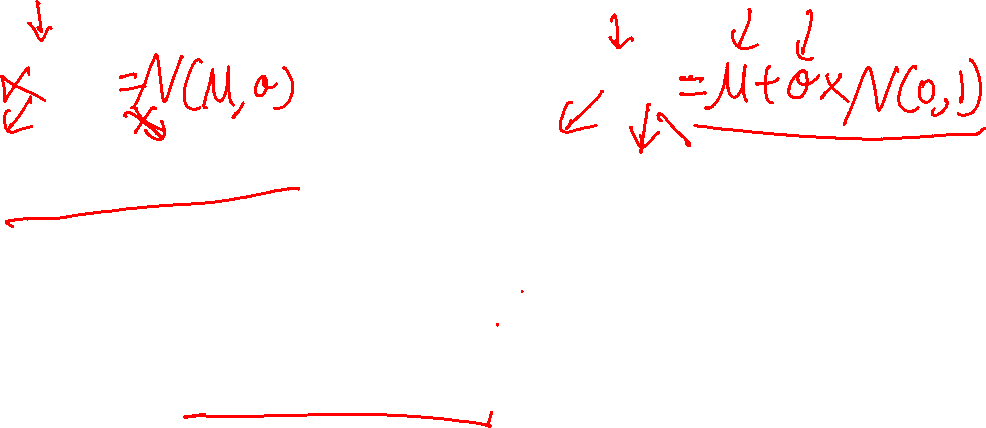 =N(μ,σ)
=μ+σ×N(0,1)